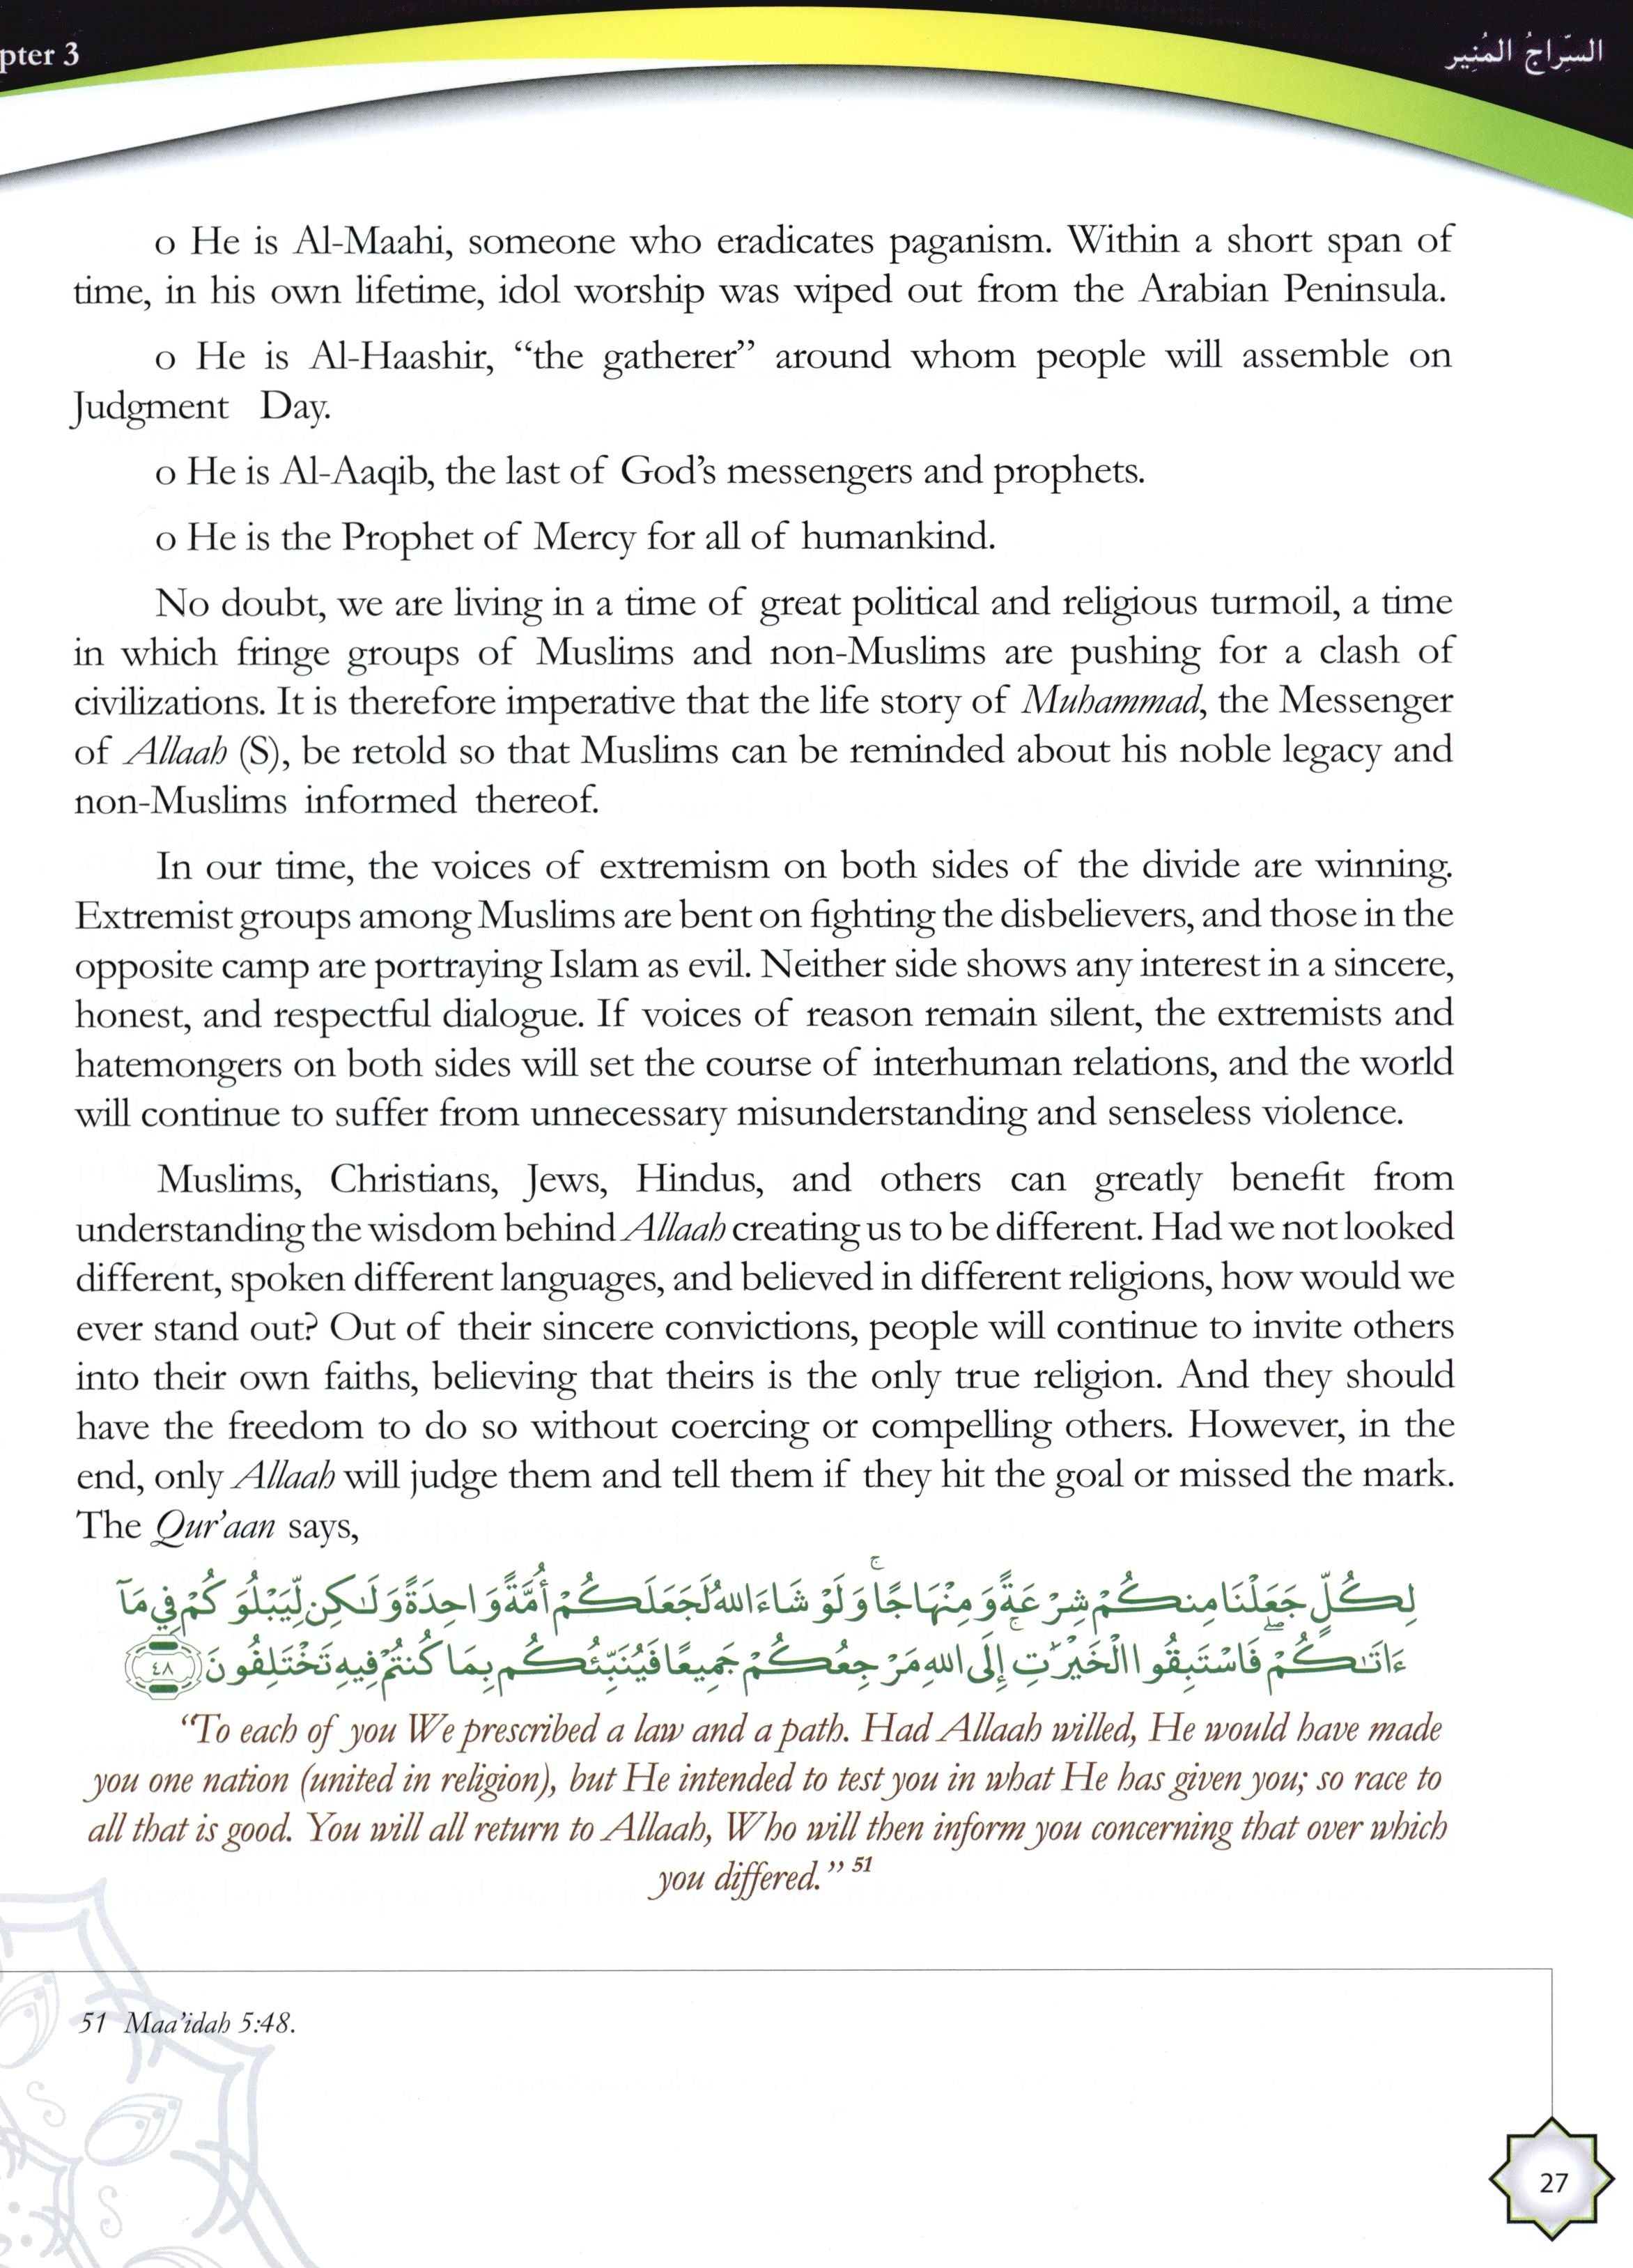 pter 3
السِّراجُ المُنِير
o He is Al-Maahi, someone who eradicates paganism. Within a short span of
time, in his own lifetime, idol worship was wiped out from the Arabian Peninsula.
o He is Al-Haashir, “the gatherer” around whom people will assemble on
Judgment Day.
o He is Al-Aaqib, the last of God’s messengers and prophets.
o He is the Prophet of Mercy for all of humankind.
No doubt, we are living in a time of great political and religious turmoil, a time
in which fringe groups of Muslims and non-Muslims are pushing for a clash of
civilizations. It is therefore imperative that the life story of Muhammad, the Messenger
of Allaah (S), be retold so that Muslims can be reminded about his noble legacy and
non-Muslims informed thereof.
In our time, the voices of extremism on both sides of the divide are winning.
Extremist groups among Muslims are bent on fighting the disbelievers, and those in the
opposite camp are portraying Islam as evil. Neither side shows any interest in a sincere,
honest, and respectful dialogue. If voices of reason remain silent, the extremists and
hatemongers on both sides will set the course of interhuman relations, and the world
will continue to suffer from unnecessary misunderstanding and senseless violence.
Muslims, Christians, Jews, Hindus, and others can greatly benefit from
understanding the wisdom behind Allaah creating us to be different. Had we not looked
different, spoken different languages, and believed in different religions, how would we
ever stand out? Out of their sincere convictions, people will continue to invite others
into their own faiths, believing that theirs is the only true religion. And they should
have the freedom to do so without coercing or compelling others. However, in the
end, only Allaah will judge them and tell them if they hit the goal or missed the mark.
The Qur’aan says,
لِكُلٍّ جَعَلْنَا مِنكُمْ شِرْعَةً وَمِنْهَاجًا ۚ وَلَوْ شَاءَ اللهُ لَجَعَلَكُمْ أُمَّةً وَاحِدَةً وَلَٰكِن لِّيَبْلُوَكُمْ فِي مَآ
ءَاتَىٰكُمْ ۖ فَاسْتَبِقُوا الْخَيْرَٰتِ ۚ إِلَى اللهِ مَرْجِعُكُمْ جَمِيعًا فَيُنَبِّئُكُم بِمَا كُنتُمْ فِيهِ تَخْتَلِفُونَ ٤٨
“To each of you We prescribed a law and a path. Had Allaah willed, He would have made
you one nation (united in religion), but He intended to test you in what He has given you; so race to
all that is good. You will all return to Allaah, Who will then inform you concerning that over which
you differed.” 51
51 Maa’idah 5:48.
27